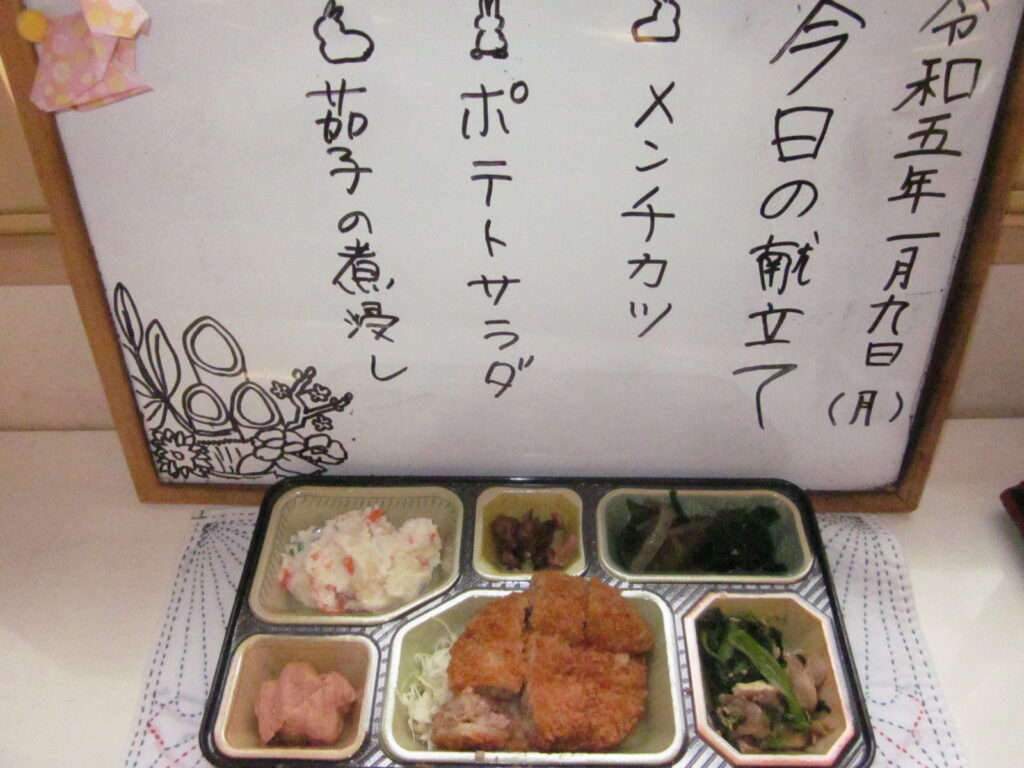 令和五年一月九日(月)
今日の献立て
メンチカツ
ポテトサラダ
茄子の煮浸し